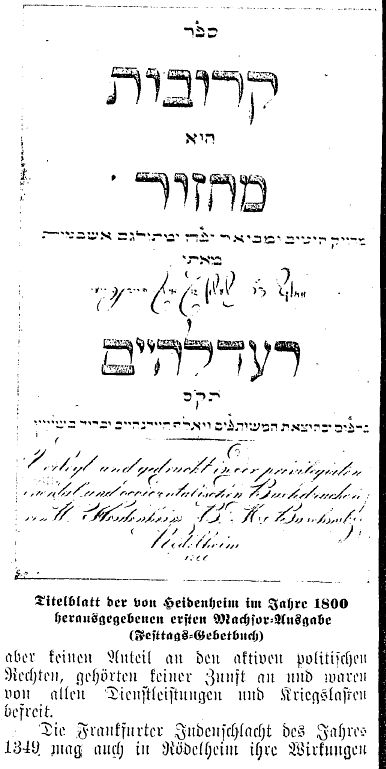 ספר
קרובות
הוא
מחזור
מדוייק היטיב ומבואר יפה ומתורגם אשכנזית
מאתי
רעדלהיים
תק״ס
נדפס בהוצאת המשותפים וואלף היידנהיים וברוך בשוויץ
Verlegt und gedruckt in der privilegirten
oriental. und occidentalischen Buchdruckerey
von W. Heidenheim & B. Baschwitz
Rödelheim
Titelblatt der von Heidenheim im Jahre 1800
herausgegebenen ersten Machsor-Ausgabe
(Festtags-Gebetbuch)
aber keinen Anteil an den aktiven politischen
Rechten, gehörten keiner Zunft an und waren
von allen Dienstleistungen und Kriegslasten
befreit.
Die Frankfurter Judenschlacht des Jahres
1349 mag auch in Rödelheim ihre Wirkungen